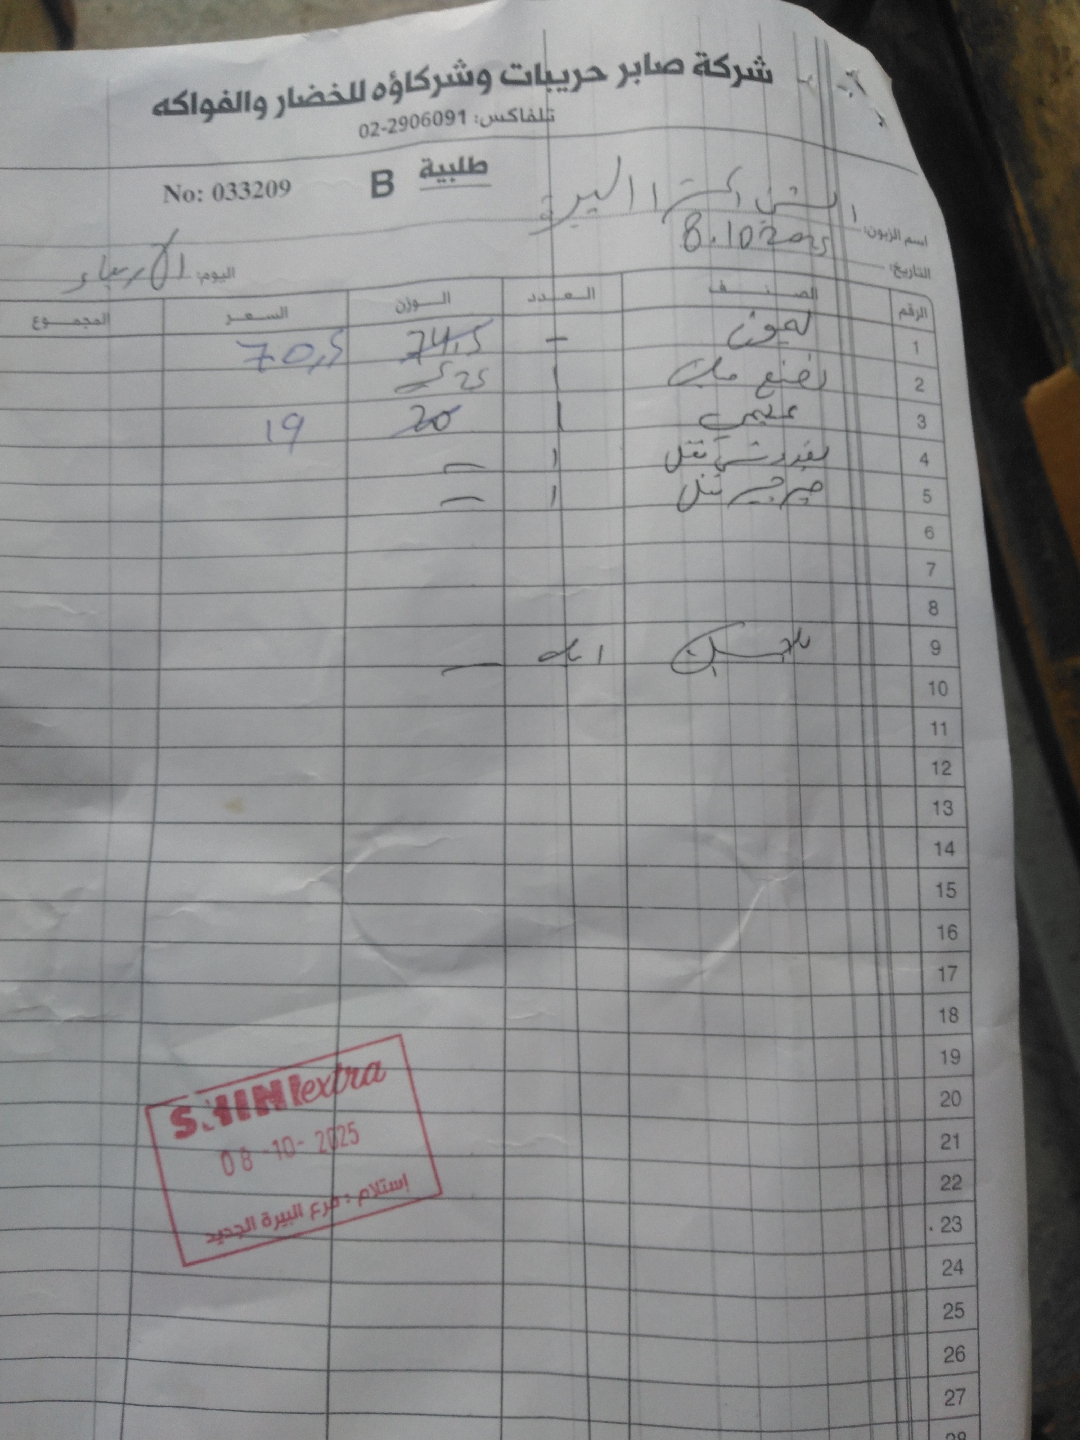 شركة صابر حريبات وشركاؤه للخضار والفواكه
تلفاكس: 02-2906091
طلبية B No: 033209
اسم الزبون: الشني اكسترا البيرة
التاريخ: 8.10.2025 اليوم: الأربعاء
الرقم الصنف العدد الوزن السعر المجموع
1 ليمون – 74,5 70,5
2 نعنع 1 25
3 1 20 19
4 بقدونس 1 –
5 جرجير 1 –
6
7
8
9
10
11
12
13
14
15
16
17
18
19
20
21
22
23
24
25
26
27
28
SHINI extra
08-10-2025
إستلام : فرع البيرة الجديد